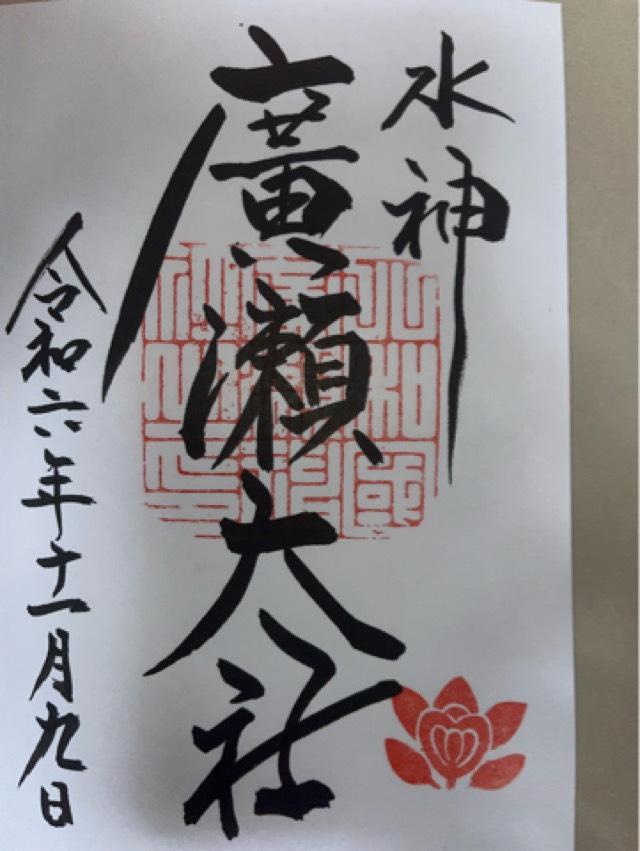 水神
廣瀬大社
令和六年十一月九日